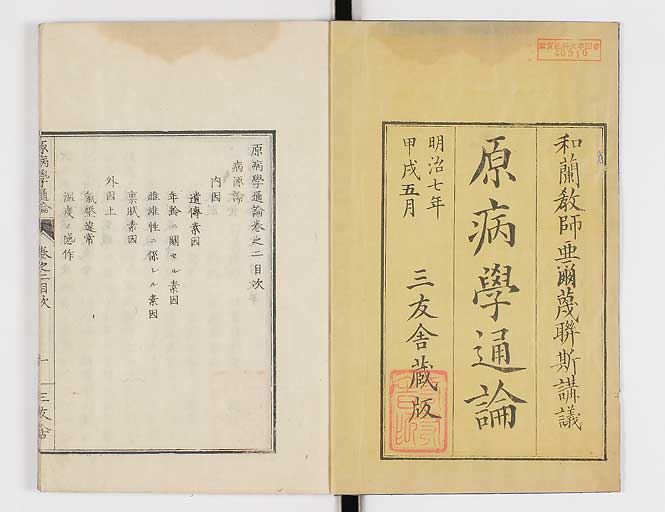 和蘭教師亜爾蔑聯斯講議
原病學通論
明治七年
甲戌五月
三友舎蔵版
40910
原病學通論巻之二目次
病源論
内因
遺傳素因
年齡ニ關セル素因
雌雄性ニ係レル素因
稟賦素因
外因上
氣壓違常
温度ノ感作
原病學通論
巻之二目次
一
三友舎